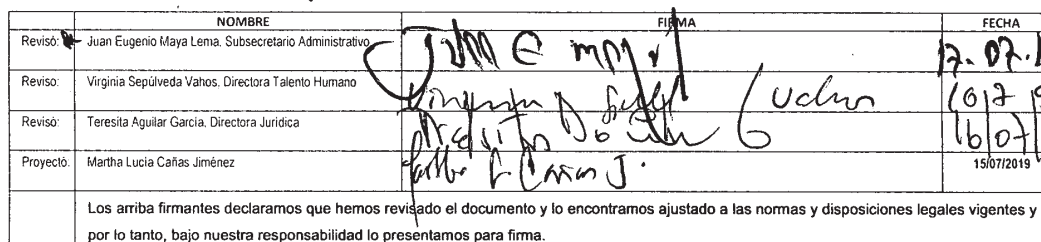 NOMBRE FIRMA FECHA
Revisó: Juan Eugenio Maya Lema. Subsecretario Administrativo 17.07.
Reviso: Virginia Sepúlveda Vahos. Directora Talento Humano
Revisó: Teresita Aguilar García. Directora Jurídica 16/07/
Proyectó: Martha Lucia Cañas Jiménez 15/07/2019
Los arriba firmantes declaramos que hemos revisado el documento y lo encontramos ajustado a las normas y disposiciones legales vigentes y
por lo tanto, bajo nuestra responsabilidad lo presentamos para firma.